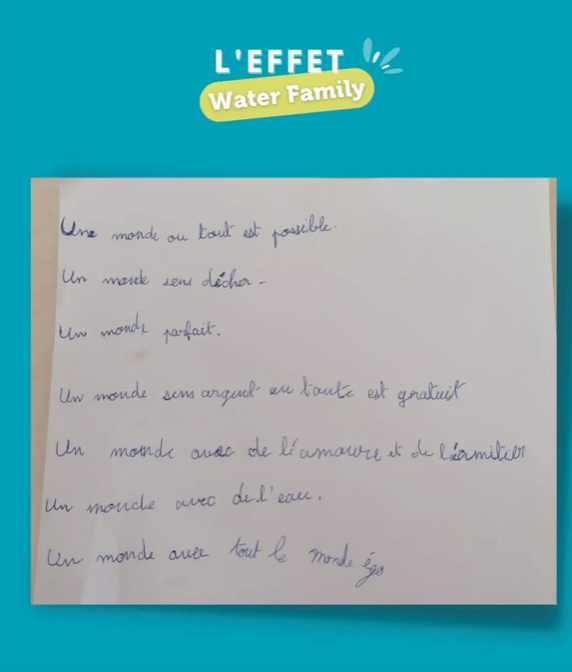 L'EFFET
Water Family
Une monde ou tout est possible.
Un monde sens décher.
Un monde parfait.
Un monde sens argent ou toute est gratuit
Un monde avec de l'éamoure et de l'éamitier
Un monde avec de l'eau.
Un monde avec tout le monde égo